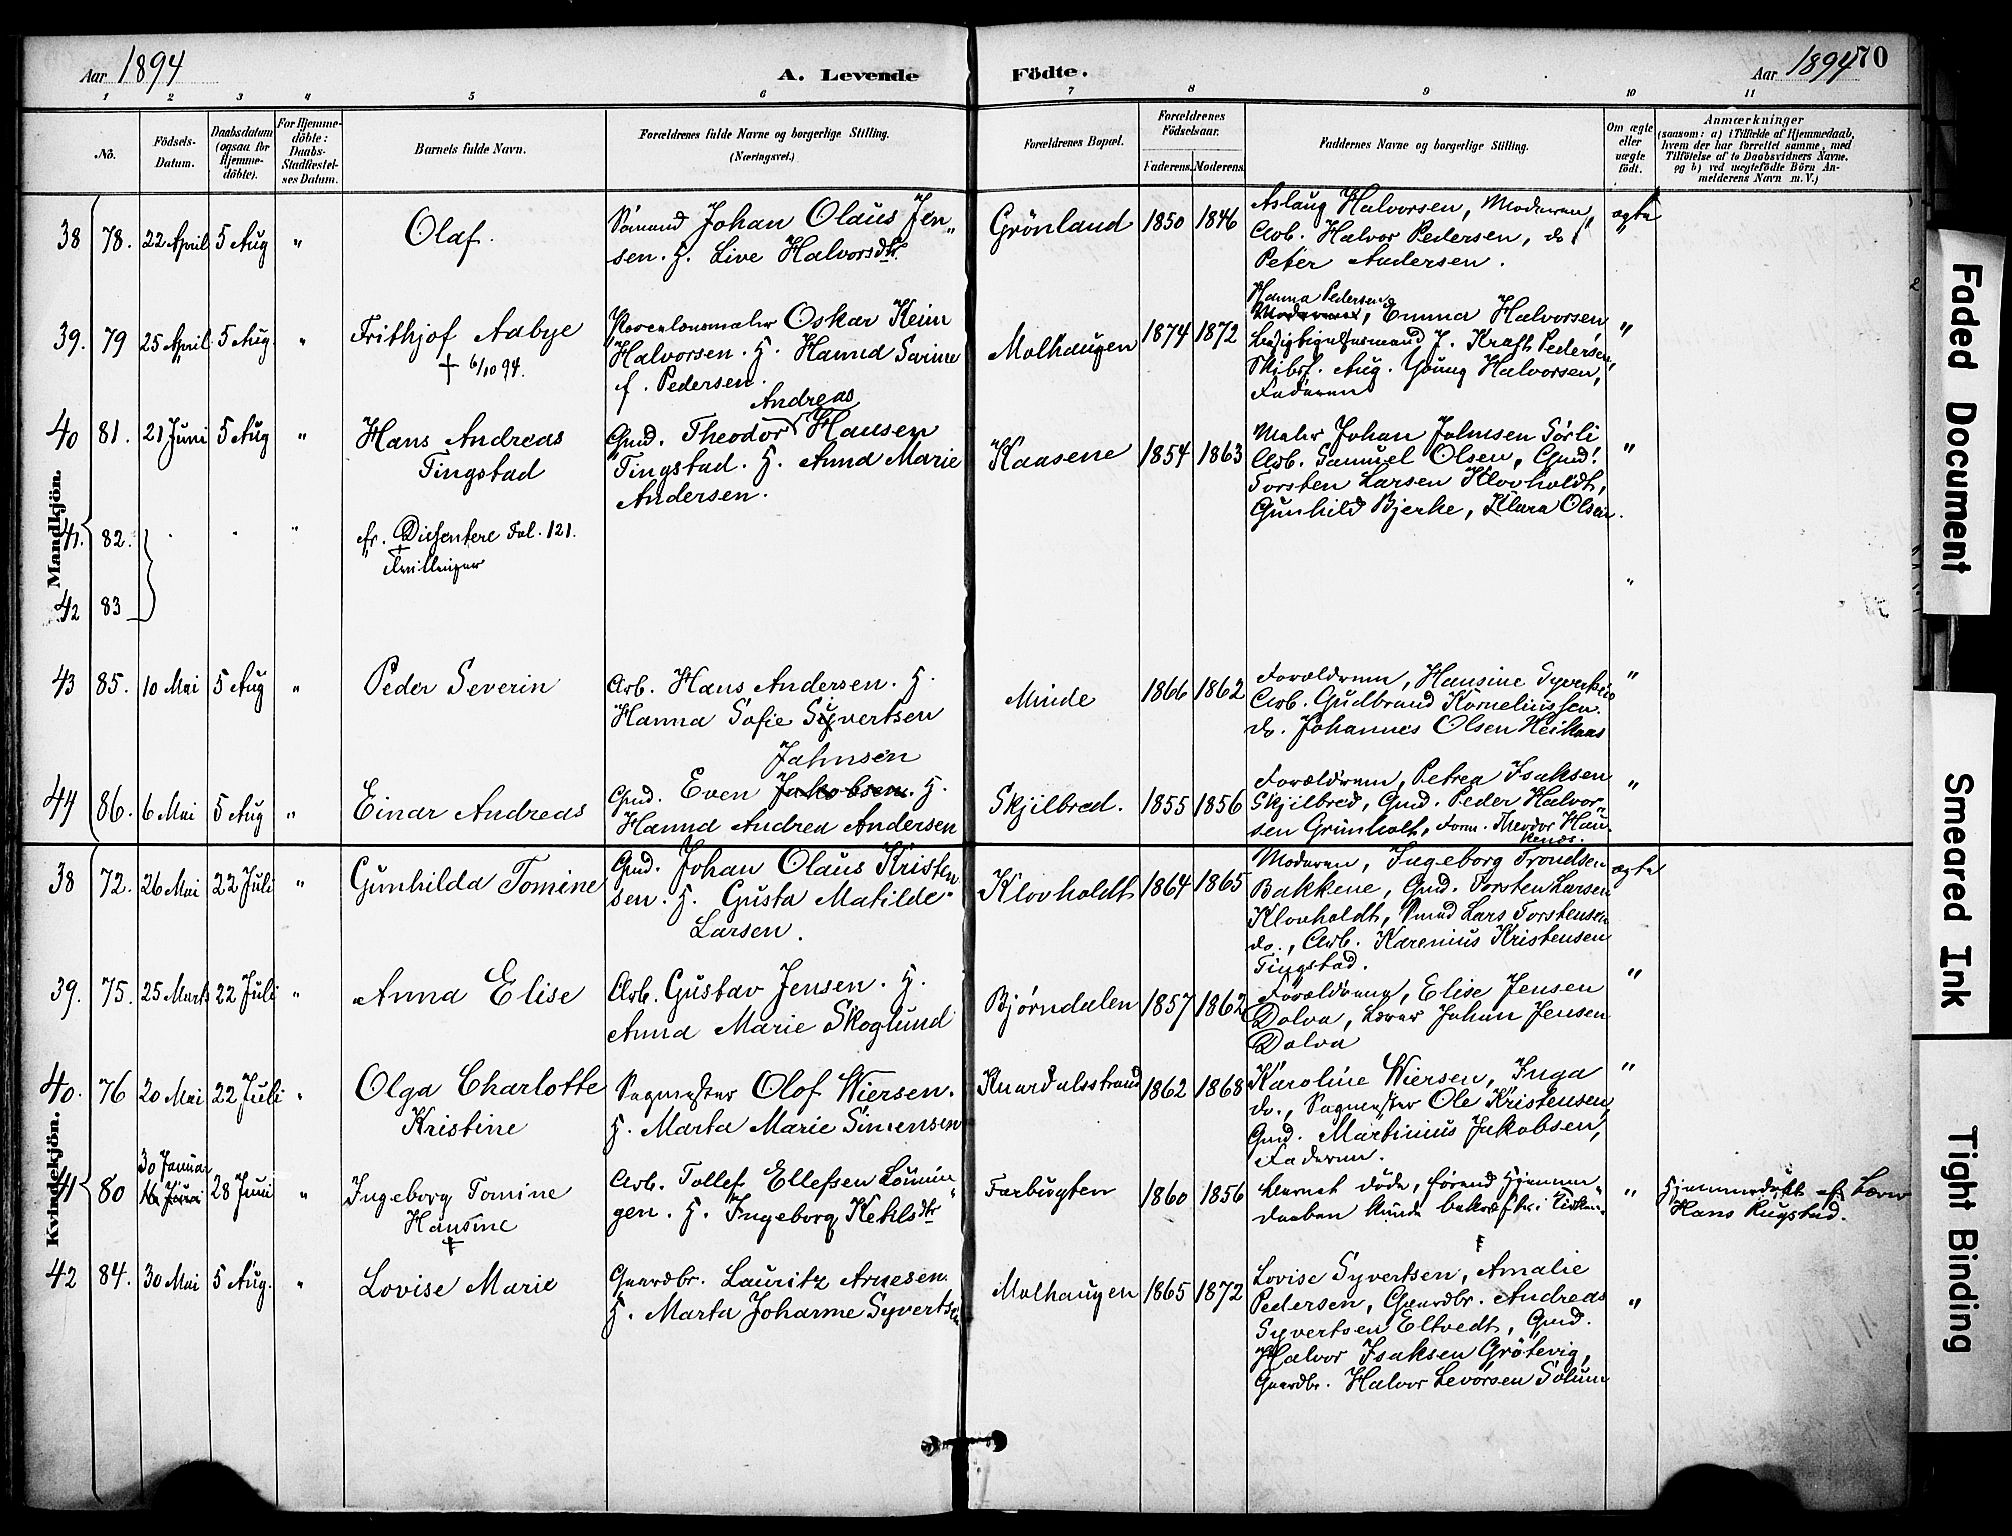 Aar 1894
A. Levende
Födte.
Aar 1894
70
1 2 3 4 5 6 7 8 9 10 11
No.
Födsels-
Datum.
Daabsdatum
(ogsaa for
Hjemme-
döbte).
For Hjemme-
döbte:
Daabs-
Stadfæstel-
ses Datum.
Barnets fulde Navn.
Forældrenes fulde Navne og borgerlige Stilling.
(Næringsvei.)
Forældrenes Bopæl.
Forældrenes
Födselsaar.
Faderens. Moderens.
Faddernes Navne og borgerlige Stilling.
Om ægte
eller
uægte
födt.
Anmærkninger
(saasom: a) i Tilfælde af Hjemmedaab,
hvem der har forrettet samme, med
Tilföielse af to Daabsvidners Navne,
og b) ved uægtefödte Börn An-
melderens Navn m. V.)
Mandkjön.
38 78. 22 April 5 Aug "
Olaf.
Sömand Johan Olaus Jen„
sen. H. Live Halvorsdtr.
Grönland 1850 1846
Aslaug Halvorsen, Moderen,
Arb. Halvor Pedersen, do
Peter Andersen.
ægte
39. 79 25 April 5 Aug. "
Frithjof Aabye
† 6/10 94.
Porcelænsmaler Oskar Keim
Halvorsen. H. Hanna Sarine
f. Pedersen.
Molhaugen 1874 1872
Hanna Pedersen
Moderen, Emma Halvorsen,
Besigtigelsesmand J. Kraft Pedersen,
Skibsf. Aug. Young Halvorsen,
Faderen
"
40 81. 21 Juni 5 Aug "
Hans Andreas
Tingstad
Andreas
Gmd. Theodor Hansen
Tingstad. H. Anna Marie
Andersen.
Kaasene 1854 1863
Maler Johan Johnsen Sörli
Arb. Samuel Olsen, Gmd.
Torsten Larsen Klovholdt,
Gunhild Bjerke, Klara Olsen.
"
41. 82. "
fr. Dissentere Fol. 121.
Tvillinger
42 83
"
43 85. 10 Mai 5 Aug "
Peder Severin
Arb. Hans Andersen. H.
Hanna Sofie Syvertsen
Minde 1866 1862
Forældrene, Hansine Syvertsen
Arb. Gudbrand Korneliussen.
do. Johannes Olsen Heikaas
"
44 86. 6 Mai 5 Aug "
Einar Andreas
Johnsen
Gmd. Even Jakobsen. H.
Hanna Andrea Andersen
Skjilbred. 1855 1856
Forældrene, Petrea Isaksen
Skjilbred, Gmd. Peder Halvor„
sen Grimholt, Form. Theodor Han„
"
Kvindekjön.
38 72. 26 Mai 22 Juli "
Gunhilda Tomine
Gmd. Johan Olaus Kristen
sen. H. Gusta Matilde
Larsen.
Klovholdt 1864 1865
Moderen, Ingeborg Trondsen
Bakkene, Gmd. Torsten Larsen
Klovholdt, Smed Lars Torstensen
do., Arb. Karenius Kristensen
Tingstad.
ægte
39. 75. 25 Marts 22 Juli "
Anna Elise
Arb. Gustav Jensen. H.
Anna Marie Skoglund
Bjørndalen 1857 1862
Forældrene, Elise Jensen
Dolva, Lærer Johan Jensen
Dolva
"
40. 76 20 Mai 22 Juli "
Olga Charlotte
Kristine
Sagmester Olof Wiersen.
H. Marta Marie Simensen
Knardalsstrand 1862 1868
Karoline Wiersen, Inga
do., Sagmester Ole Kristensen,
Gmd. Martinius Jakobsen,
Faderen.
"
41 80
30 Januar
16 Juni 28 Juni "
Ingeborg Tomine
Hansine
†
Arb. Tollef Ellefsen Lömin„
gen. H. Ingeborg Ketilsdtr
Farbugten 1860 1856
Barnet döde, förend Hjemme„
daaben kunde bekræftes i Kirken.
"
Hjemmedöbt af Lærer
Hans Rugstad.
42 84. 30 Mai 5 Aug. "
Lovise Marie
Gaardbr. Lauritz Arnesen.
H. Marta Johanne Syvertsen
Molhaugen 1865 1872
Lovise Syvertsen, Amalie
Pedersen, Gaardbr. Andreas
Syvertsen Eltvedt, Gmd.
Halvor Isaksen Grötevig,
Gaardbr. Halvor Levorsen Solum
"
Faded Document
Smeared Ink
Tight Binding